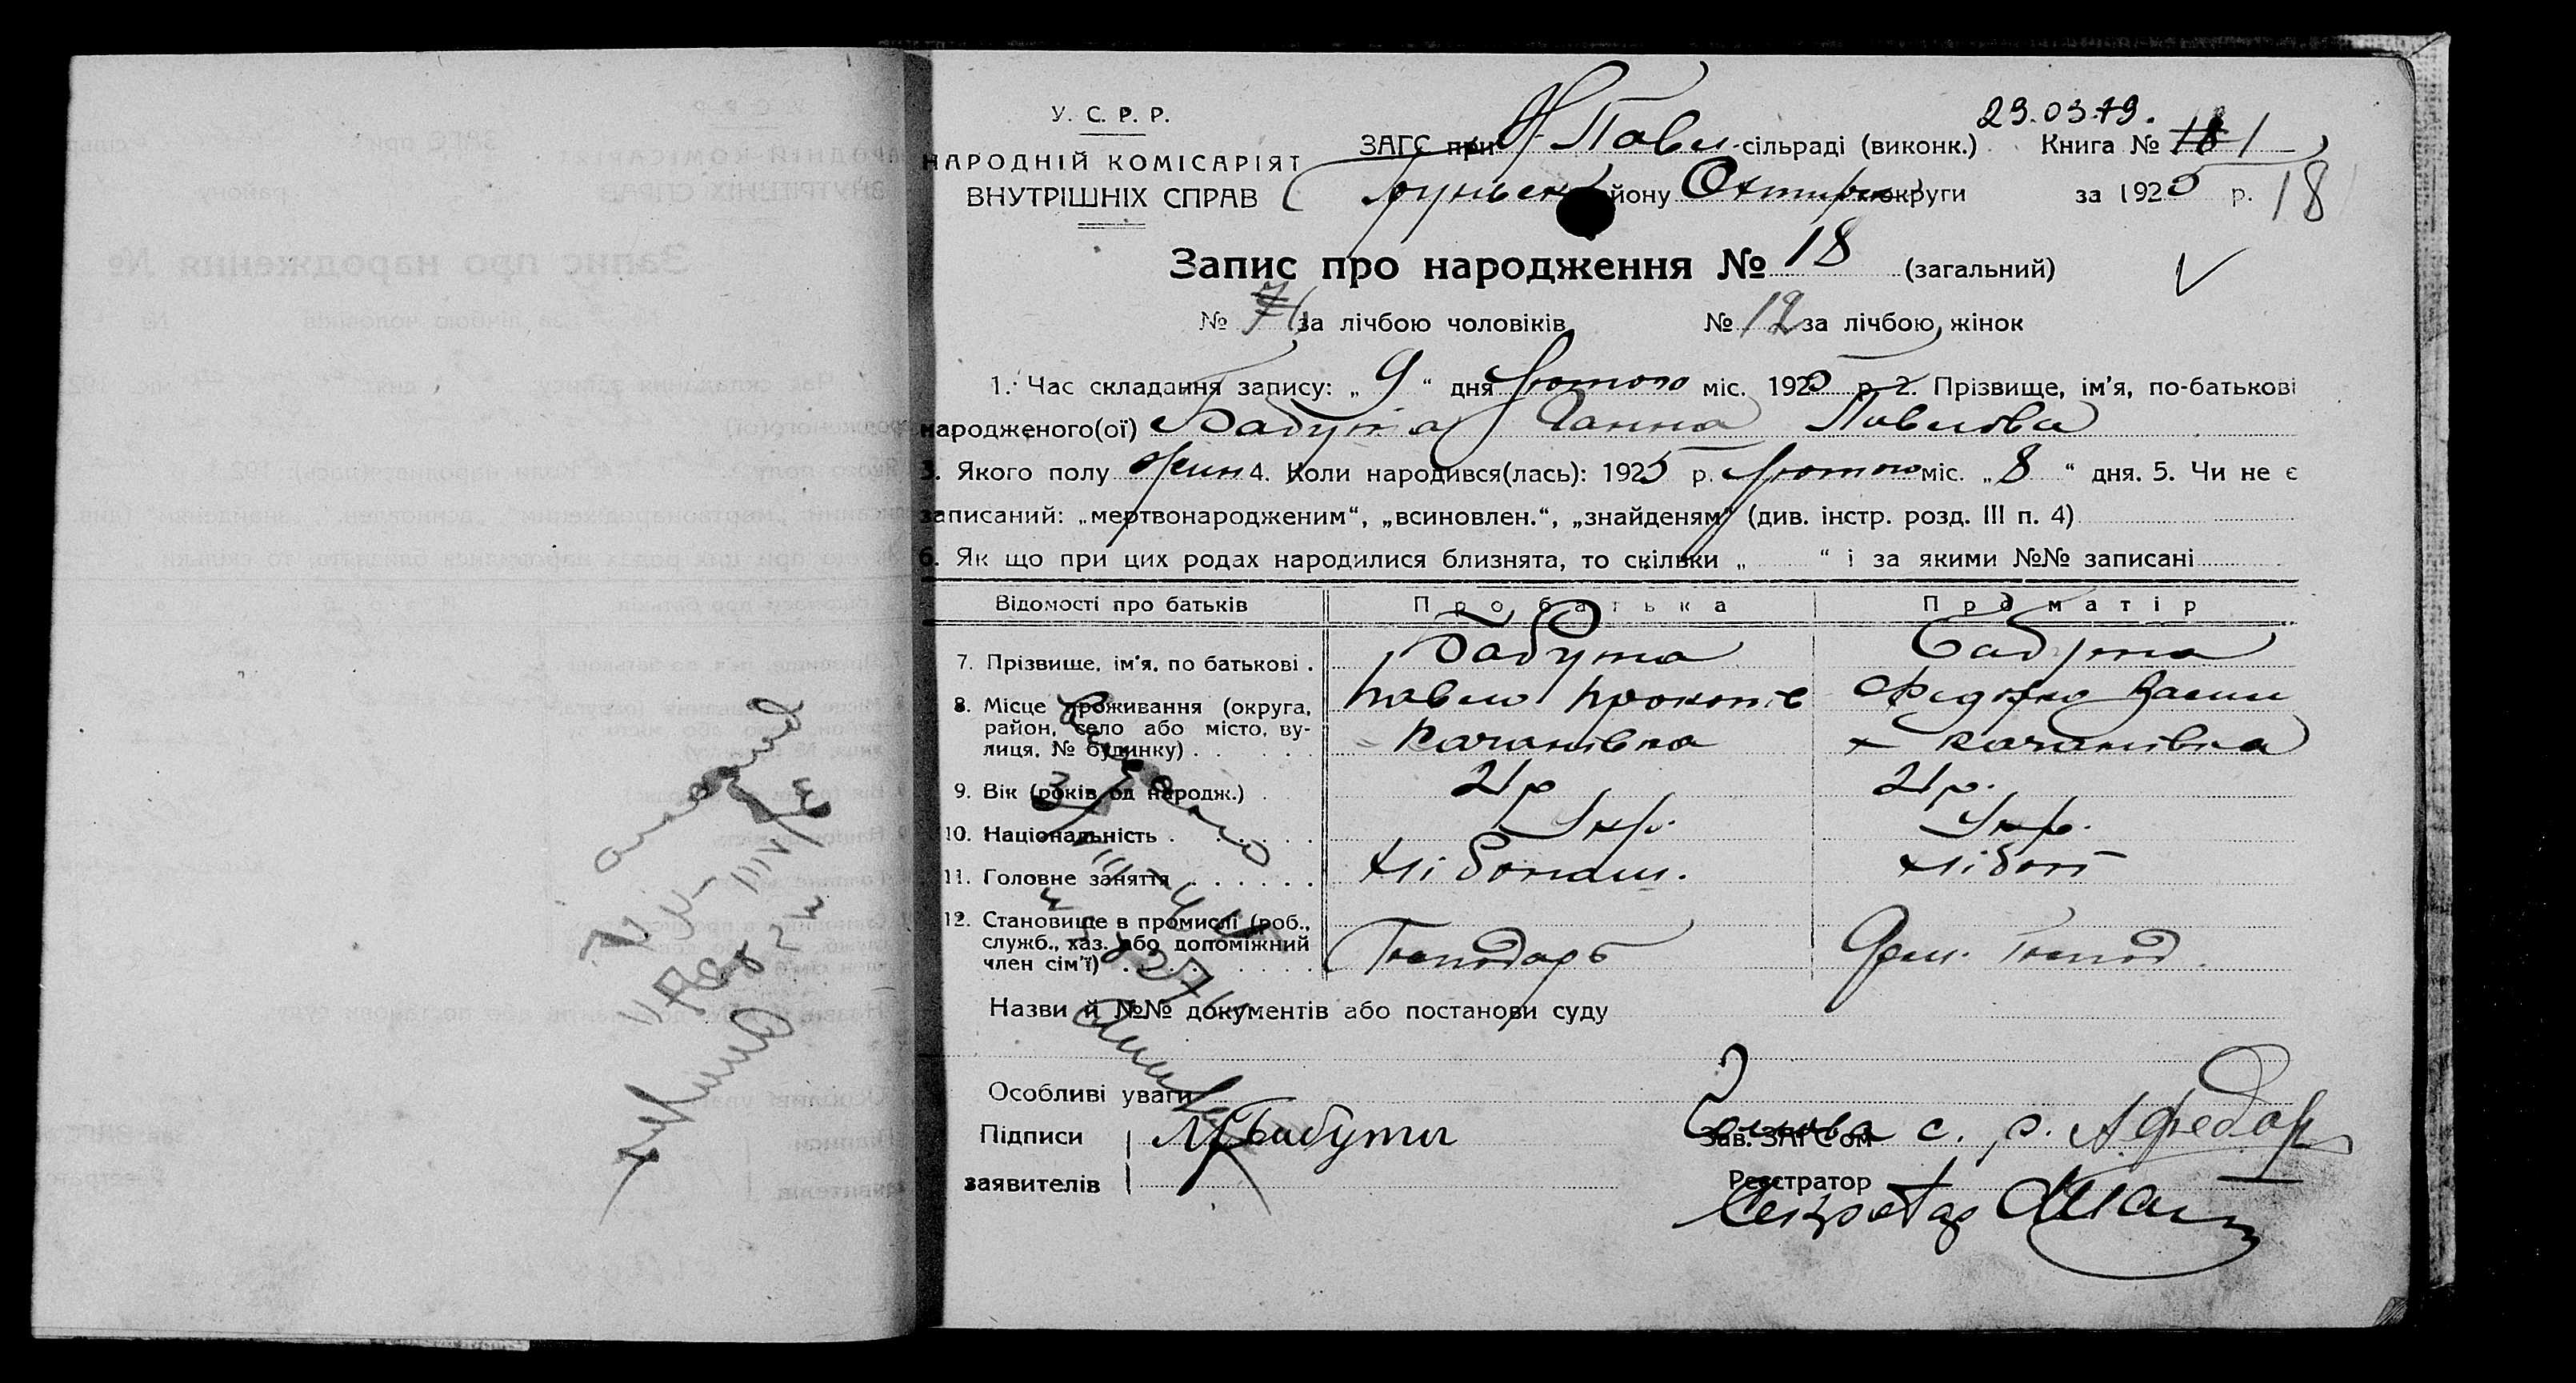 23.03.79.
У. С. Р. Р.
НАРОДНІЙ КОМІСАРІЯТ
ВНУТРІШНІХ СПРАВ
ЗАГС при Н Павл сільраді (виконк.) Книга № 1
йону Охтирк округи за 1925 р. 18
Запис про народження № 18 (загальний)
№ за лічбою чоловіків № 12 за лічбою жінок
1. Час складання запису: „ 9 “ дня лютого міс. 1925 р. 2. Прізвище, ім'я, по-батькові
народженого(ої) Бабута Ганна Павлова
3. Якого полу жін 4. Коли народився(лась): 1925 р. лютого міс. „ 8 “ дня. 5. Чи не є
записаний: „мертвонародженим“, „всиновлен.“, „знайденям“ (див. інстр. розд. III п. 4)
6. Як що при цих родах народилися близнята, то скільки „ “ і за якими №№ записані
Відомості про батьків Про батька Про матір
7. Прізвище, ім'я, по батькові . Бабута Бабута
8. Місце проживання (округа, Павло Прокопів
район, село або місто, ву-
лиця, № будинку) . . . Качанівка х Качанівка
9. Вік (років од народж.) . 21 р 21 р.
10. Національність . . . . . Укр. Укр.
11. Головне заняття . . . . . Хлібопаш. хлібоп
12. Становище в промислі (роб.,
служб., хаз. або допоміжний
член сім'ї) . . . . . Господарь Господ.
Назви й №№ документів або постанови суду
Особливі уваги
Підписи Бабута Зав. ЗАГС'ом Голова с. р. А Федор
заявителів Реєстратор
Секретар